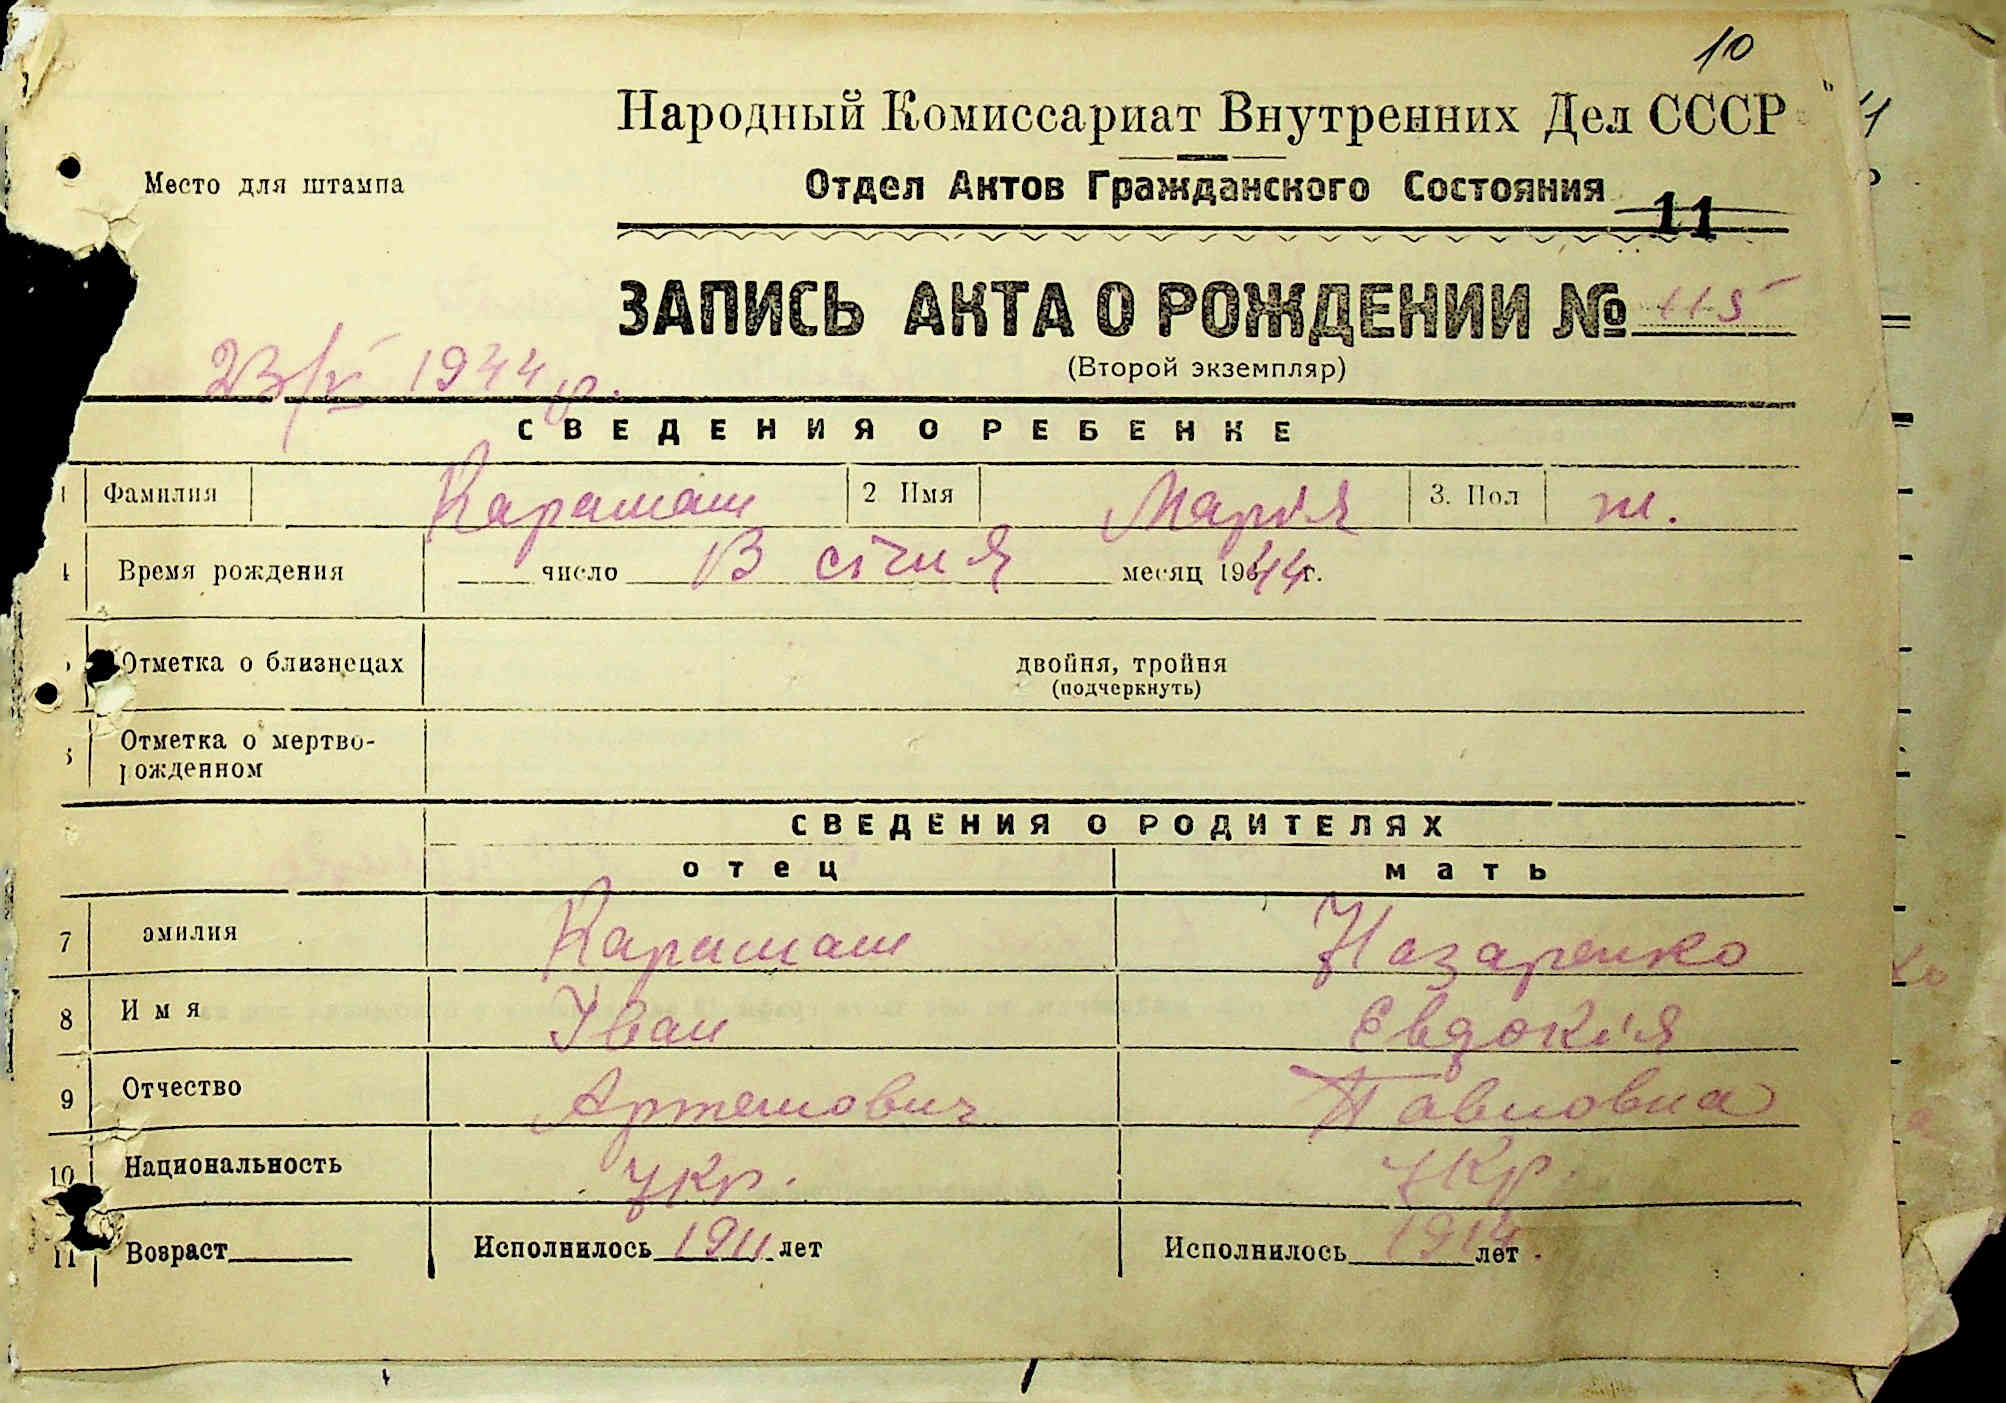 10
Народный Комиссариат Внутренних Дел СССР
Место для штампа
Отдел Актов Гражданского Состояния
11
ЗАПИСЬ АКТА О РОЖДЕНИИ № 115
(Второй экземпляр)
23/V 1944 р.
СВЕДЕНИЯ О РЕБЕНКЕ
1 Фамилия Карамаш 2 Имя Марія 3. Пол ж.
4 Время рождения число 13 січня месяц 1944 г.
Отметка о близнецах двойня, тройня
(подчеркнуть)
Отметка о мертво-
рожденном
СВЕДЕНИЯ О РОДИТЕЛЯХ
отец мать
7 амилия Карамаш Назаренко
8 Имя Іван Євдокія
9 Отчество Артемович Павловна
10 Национальность укр. укр.
11 Возраст Исполнилось 1911 лет Исполнилось 1914 лет